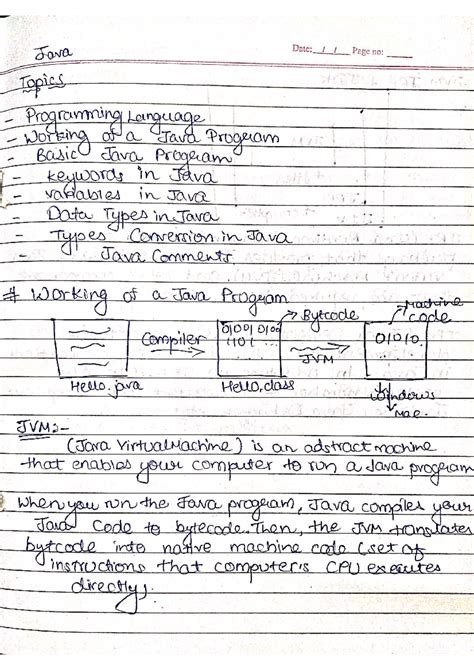 Java
Date: / / Page no:
Topics
- Programming Language
- Working of a Java Program
- Basic Java Program
- keywords in Java
- variables in Java
- Data Types in Java
- Types Conversion in Java
- Java Comments
# Working of a Java Program
Compiler
01001 0100
1101 ...
→ Bytcode
JVM
01010.
→ Machine code
Hello.java
Hello.class
Windows
Mac.
JVM:-
(Java VirtualMachine) is an adstract machine
that enables your computer to run a Java program
When you run the Java program, Java compiles your
Java Code to bytecode. Then, the JVM translates
bytcode into native machine code (set of
instructions that computer's CPU executes
directly).